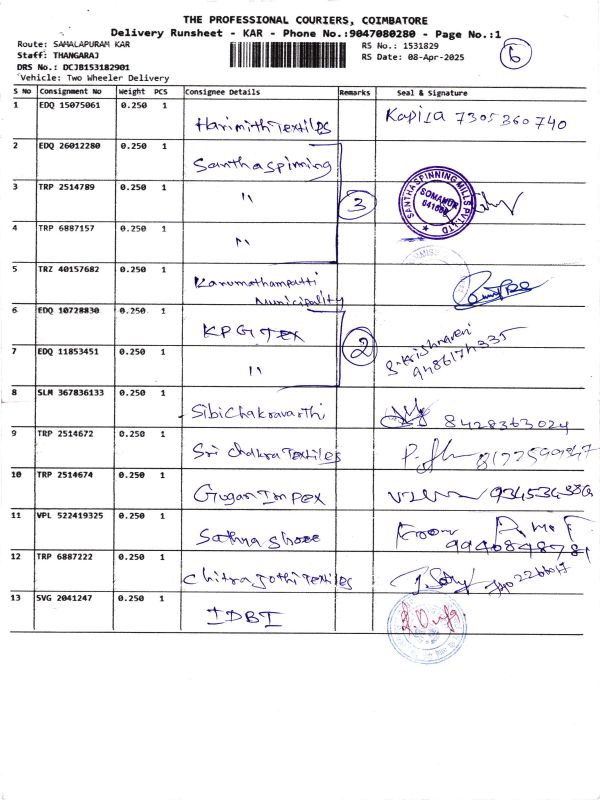 THE PROFESSIONAL COURIERS, COIMBATORE
Delivery Runsheet - KAR - Phone No.:9047080280 - Page No.:1
Route: SAMALAPURAM KAR
RS No.: 1531829
6
Staff: THANGARAJ
RS Date: 08-Apr-2025
DRS No.: DCJB153182901
Vehicle: Two Wheeler Delivery
S No Consignment No Weight PCS Consignee Details Remarks Seal & Signature
1 EDQ 15075061 0.250 1 Harimith Textiles Kapila 7305360740
2 EDQ 26012280 0.250 1 Santhaspinning
3 TRP 2514789 0.250 1 " 3 SANTHA SPINNING MILLS PVT. LTD SOMANUR
4 TRP 6887157 0.250 1 "
5 TRZ 40157682 0.250 1 Karumathampatti
Municipality
6 EDQ 10728830 0.250 1 KPG Tex 2 S. Krishnaveni
7 EDQ 11853451 0.250 1 " 9486174335
8 SLM 367836133 0.250 1 Sibi Chakravarthi 8428363024
9 TRP 2514672 0.250 1 Sri Chakra Textiles
10 TRP 2514674 0.250 1 Gugan Impex
11 VPL 522419325 0.250 1 Sathna Shree
9940848781
12 TRP 6887222 0.250 1 Chitra Jothi Textiles
13 SVG 2041247 0.250 1 IDBI